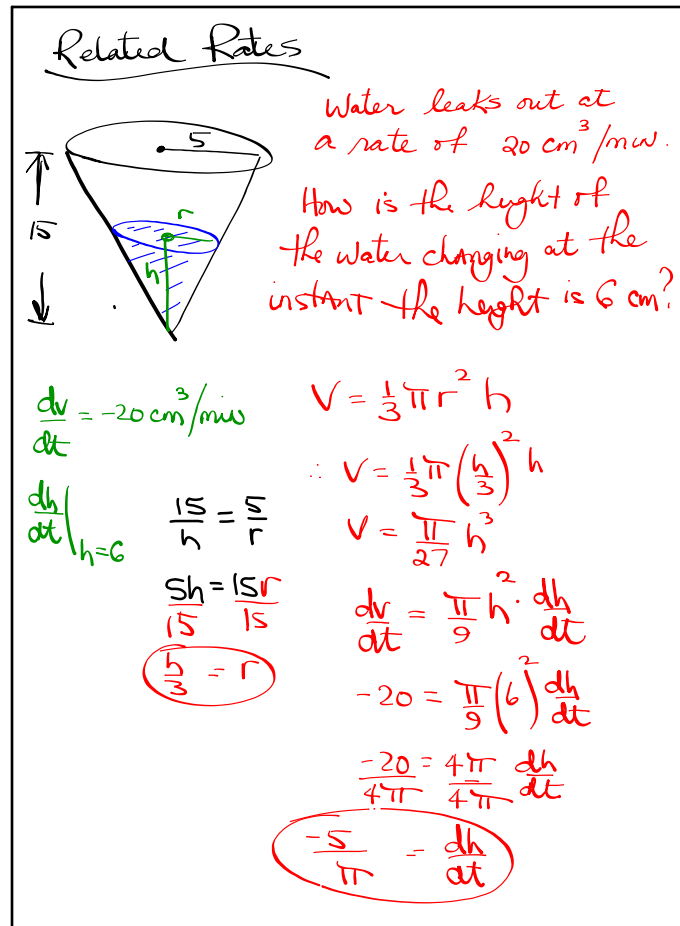 Related Rates
Water leaks out at
a rate of 20 cm³/min.
How is the height of
the water changing at the
instant the height is 6 cm?
5
15
r
h
dv/dt = -20 cm³/min
dh/dt |h=6
15/h = 5/r
5h/15 = 15r/15
h/3 = r
V = 1/3 π r² h
∴ V = 1/3 π (h/3)² h
V = π/27 h³
dv/dt = π/9 h² · dh/dt
-20 = π/9 (6)² dh/dt
-20/4π = 4π/4π dh/dt
-5/π = dh/dt